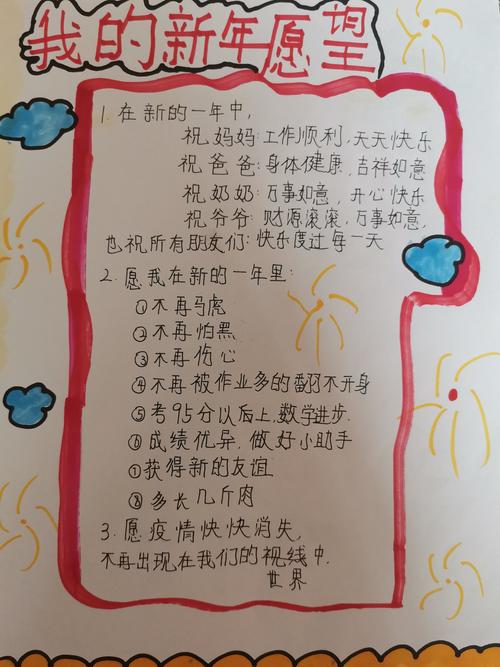 我的新年愿望
1.在新的一年中,
祝妈妈:工作顺利,天天快乐
祝爸爸:身体健康,吉祥如意
祝奶奶:万事如意,开心快乐
祝爷爷:财源滚滚,万事如意,
也祝所有朋友们:快乐度过每一天
2.愿我在新的一年里:
①不再马虎
②不再怕黑
③不再伤心
④不再被作业多的翻不开身
⑤考95分以后上,数学进步.
⑥成绩优异,做好小助手
⑦获得新的友谊
⑧多长几斤肉
3.愿疫情快快消失,
不再出现在我们的视线中.
世界